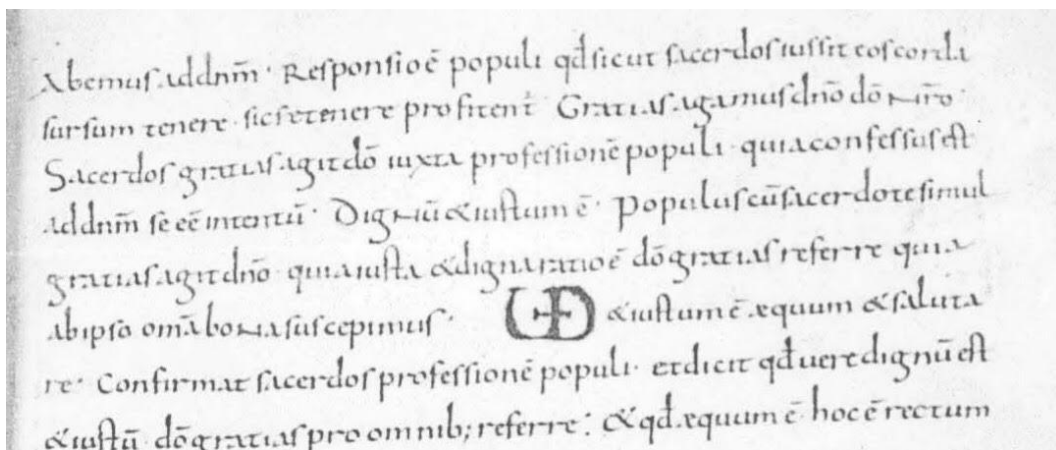 Abemus ad dnm̄ · Responsio ē populi qđ sicut sacerdos iussit eos corda
sursum tenere · sic se tenere profitent̄ Gratias agamus dnō dō nrō ·
Sacerdos gratias agit dō iuxta professionē populi · quia confessus est
ad dnm̄ se eē intentū · Dignū & iustum ē · Populus cū sacerdote simul
gratias agit dnō · quia iusta & digna ratio ē dō gratias referre quia
ab ipso omā bona suscepimus · UD & iustum ē æquum & saluta
re · Confirmat sacerdos professionē populi · et dicit qđ uere dignū est
& iustū dō gratias pro omnib; referre · & qđ æquum ē hoc ē rectum